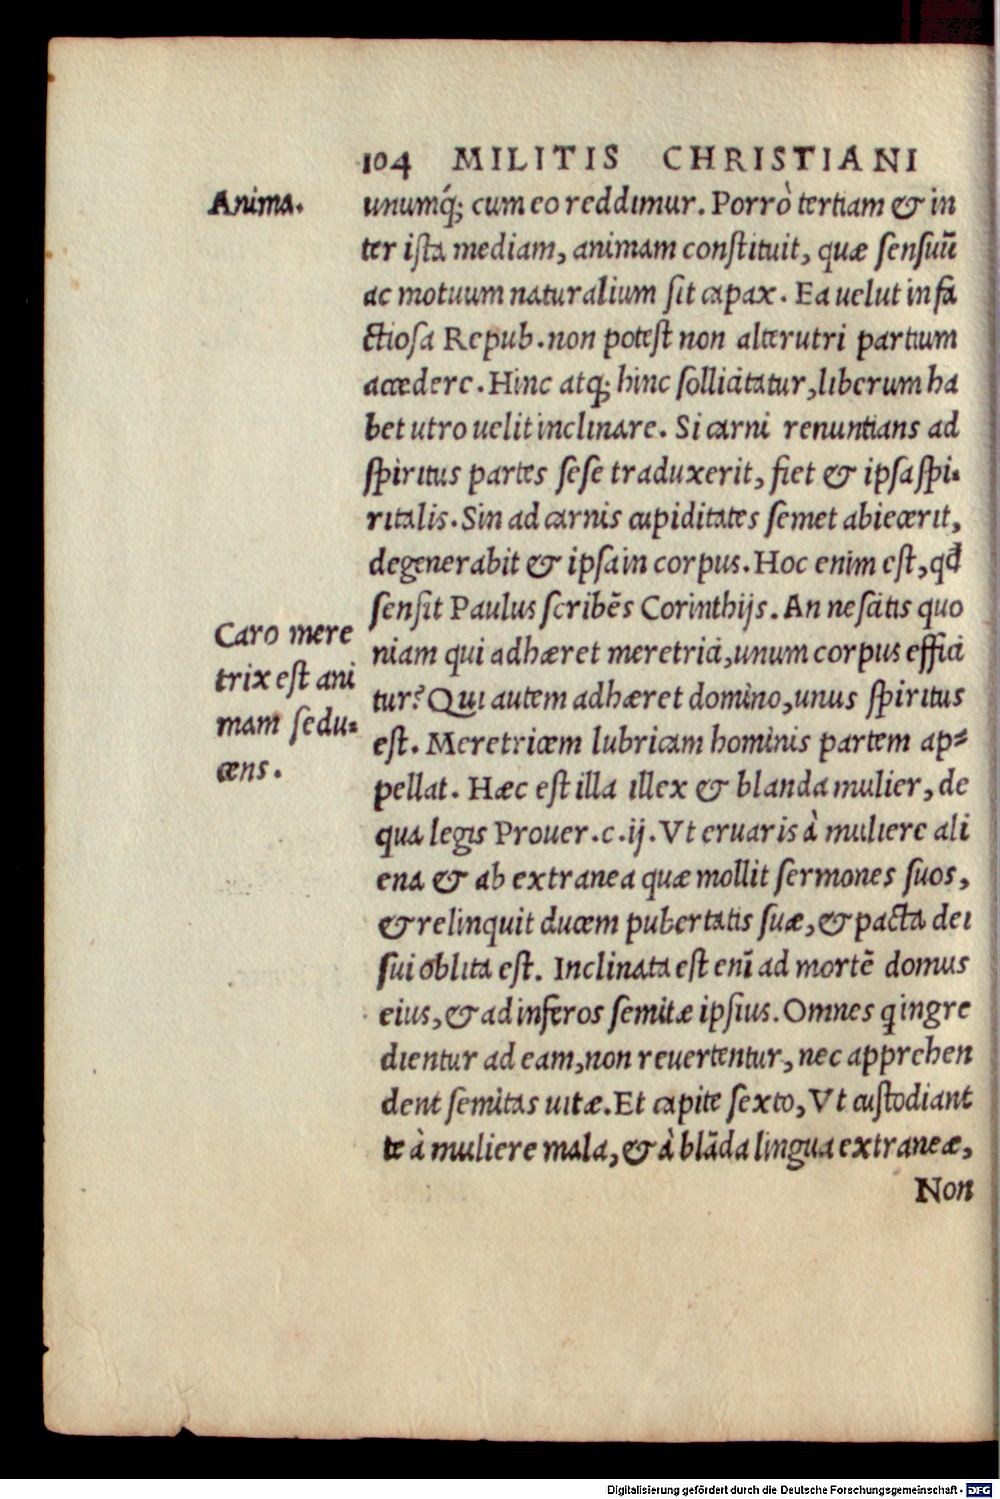 104 MILITIS CHRISTIANI
Anima.
unumq́; cum eo reddimur. Porrò tertiam & in
ter ista mediam, animam constituit, quæ sensuũ
ac motuum naturalium sit capax. Ea uelut in fa
ctiosa Repub. non potest non alterutri partium
accedere. Hinc atq; hinc sollicitatur, liberum ha
bet utro uelit inclinare. Si carni renuntians ad
spiritus partes sese traduxerit, fiet & ipsa spi-
ritalis. Sin ad carnis cupiditates semet abiecerit,
degenerabit & ipsa in corpus. Hoc enim est, qđ
sensit Paulus scribẽs Corinthijs. An nescitis quo
niam qui adhæret meretrici, unum corpus effici
tur? Qui autem adhæret domino, unus spiritus
est. Meretricem lubricam hominis partem ap-
pellat. Hæc est illa illex & blanda mulier, de
qua legis Prouer. c. ij. Vt eruaris à muliere ali
ena & ab extranea quæ mollit sermones suos,
& relinquit ducem pubertatis suæ, & pacta dei
sui oblita est. Inclinata est enĩ ad mortẽ domus
eius, & ad inferos semitæ ipsius. Omnes q ingre
dientur ad eam, non reuertentur, nec apprehen
dent semitas uitæ. Et capite sexto, Vt custodiant
te à muliere mala, & à blãda lingua extraneæ,
Non
Caro mere
trix est ani
mam sedu-
cens.
Digitalisierung gefördert durch die Deutsche Forschungsgemeinschaft - DFG